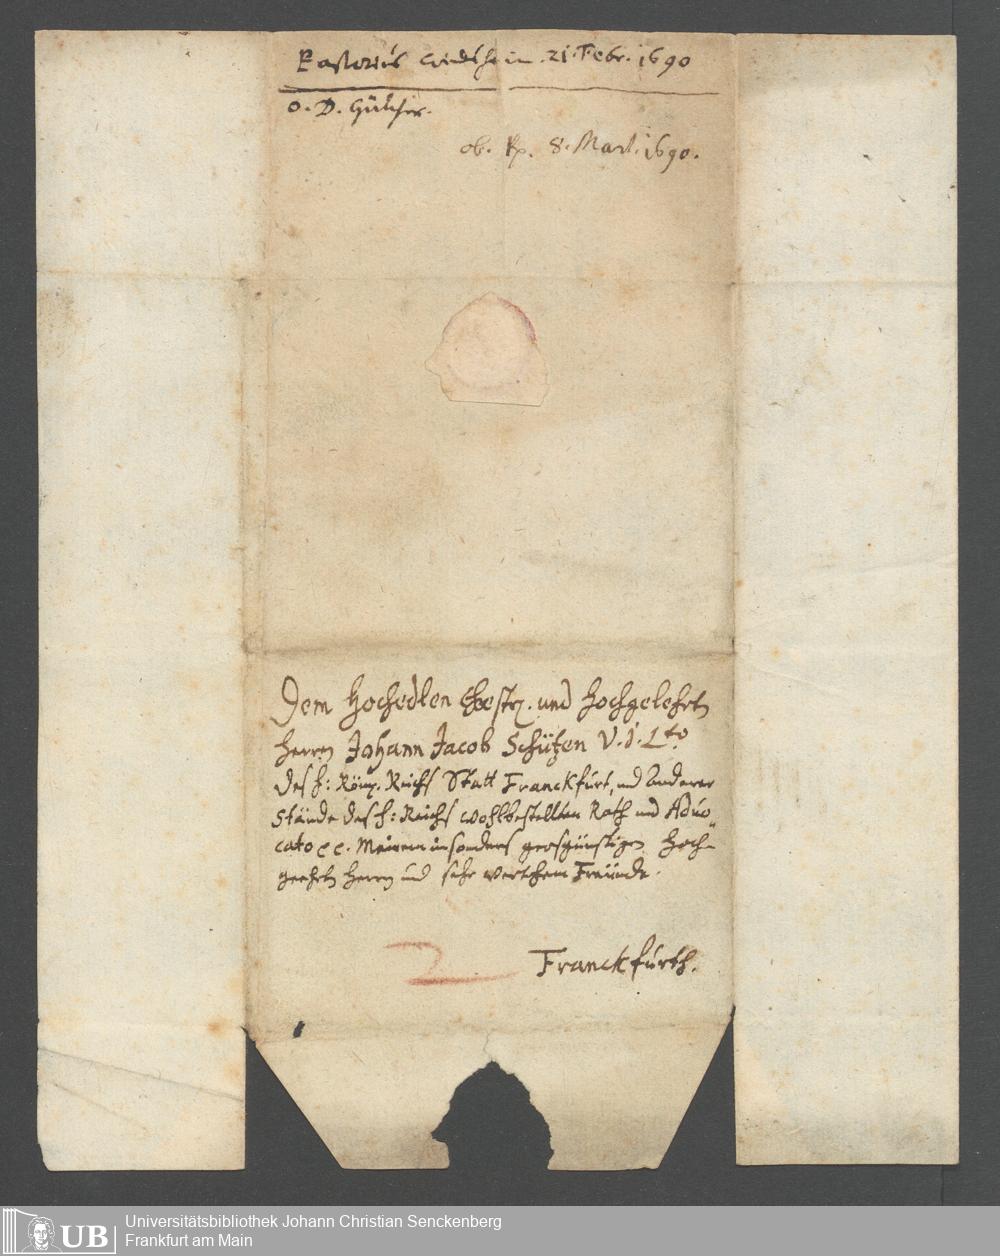 Pastorius Windsheim. 21. Febr. 1690
o. D. Gülcher.
ob. Rp. 8. Mart. 1690.
Dem Hochedlen Vestr. und Hochgelehrtn
Herrn Johann Jacob Schützen V. J. Lto
des h: Röm. Reichs Statt Franckfurt, und anderer
Stände des h: Reichs wohlbestellten Rath und Advo„
cato ec. Meinem insonders grosgünstigen Hoch-
geehrtn Herrn und sehr werthem Freünde.
2
Franckfurth.
UB
Universitätsbibliothek Johann Christian Senckenberg
Frankfurt am Main